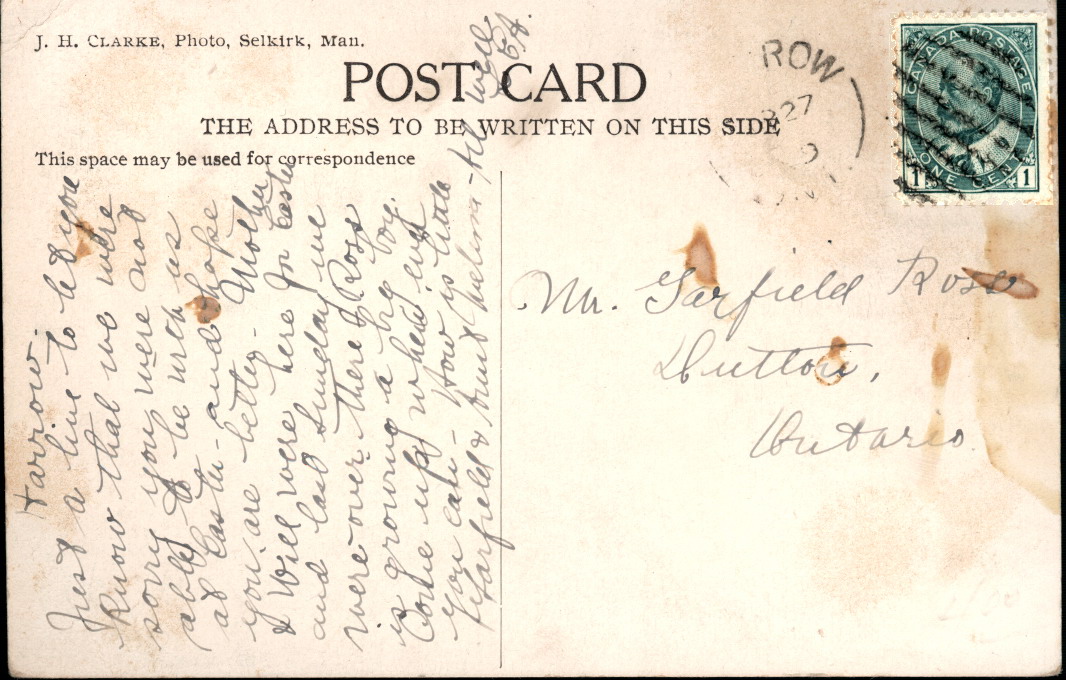 J. H. CLARKE, Photo, Selkirk, Man.
POST CARD
THE ADDRESS TO BE WRITTEN ON THIS SIDE
This space may be used for correspondence
ROW
27
CANADA POSTAGE
1 ONE CENT 1
Harrow.
Just a line to let you
Know that we were
sorry you were not
able to be with us
at Easter - and hope
you are better - Mother
& Will were here for Easter
and last Sunday we
were over there & Ross
is growing a big boy.
Come up when ever
you can - How is little
Garfield & Aunt - All well
Mr. Garfield Ross
Dutton,
Ontario.